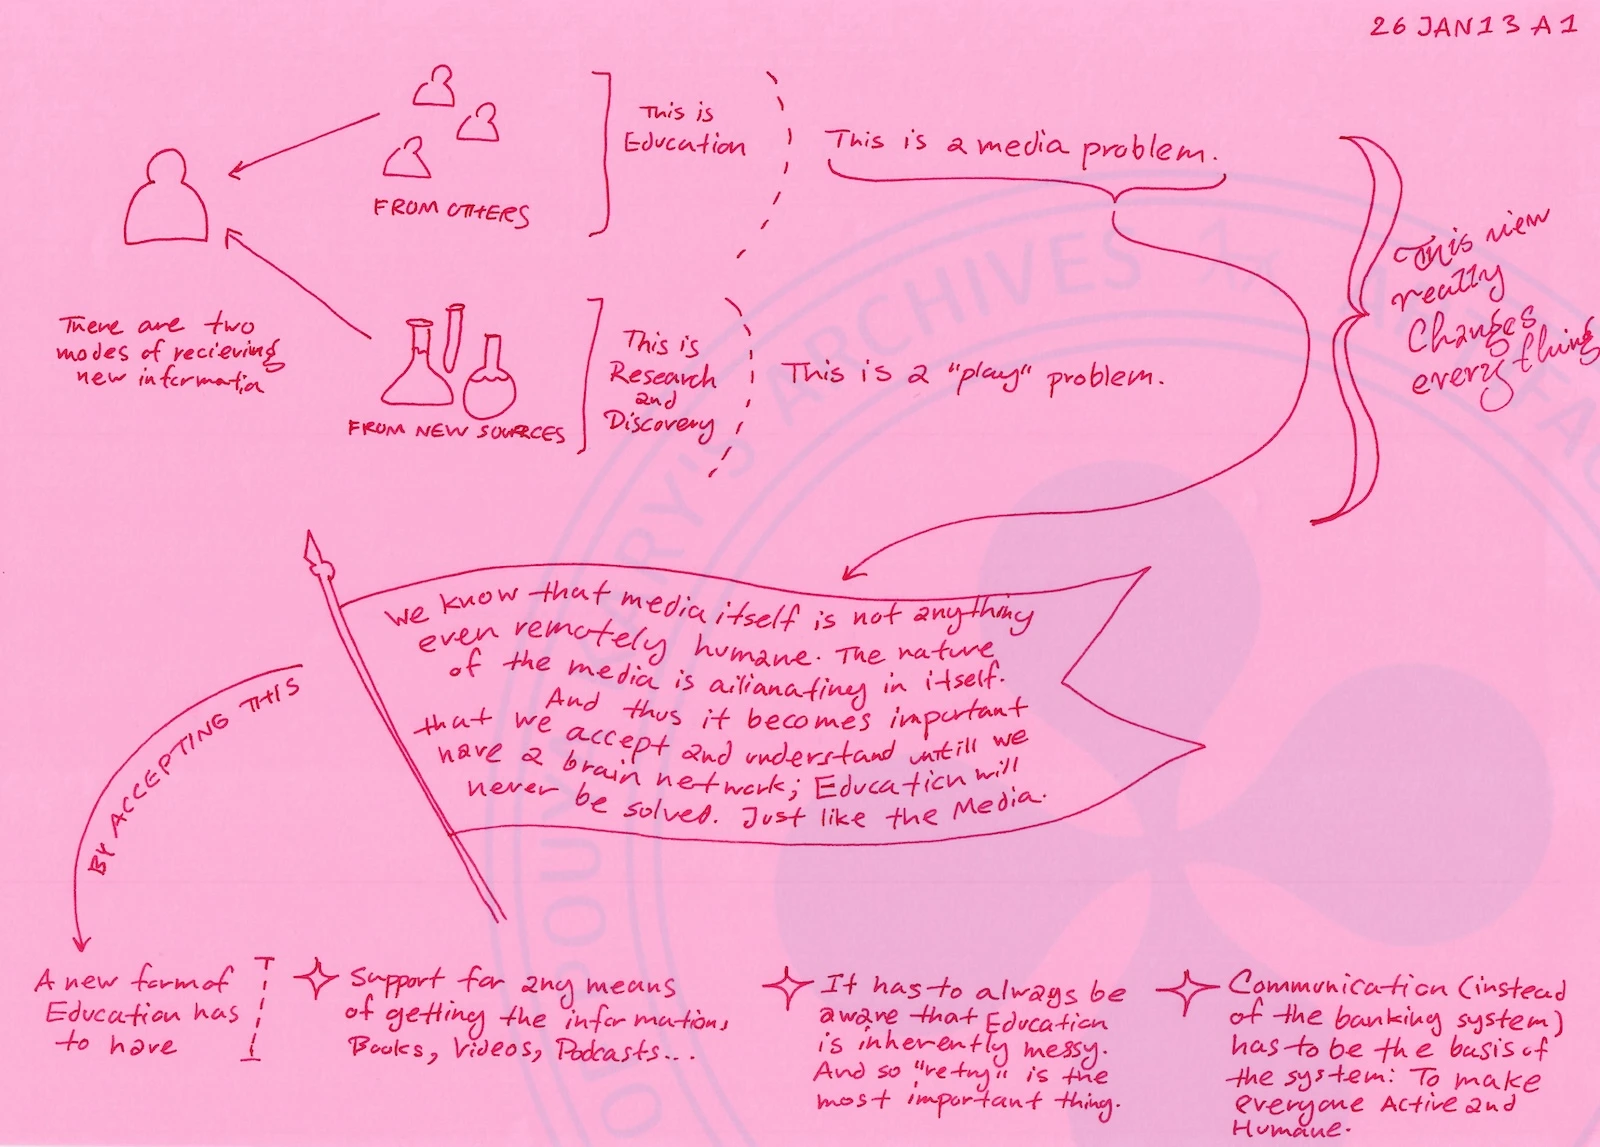 26 JAN13 A1
This is
Education
This is a media problem.
FROM OTHERS
This view
really
Changes
everything
There are two
modes of recieving
new information
This is
Research
and
Discovery
This is a "play" problem.
FROM NEW SOURCES
ARCHIVES
We know that media itself is not anything
even remotely humane. The nature
of the media is ailianating in itself.
And thus it becomes important
that we accept and understand untill we
have a brain network; Education will
never be solved. Just like the Media.
BY ACCEPTING THIS
A new form of
Education has
to have
Support for any means
of getting the information,
Books, Videos, Podcasts...
It has to always be
aware that Education
is inherently messy.
And so "retry" is the
most important thing.
Communication (instead
of the banking system)
has to be the basis of
the system: To make
everyone Active and
Humane.